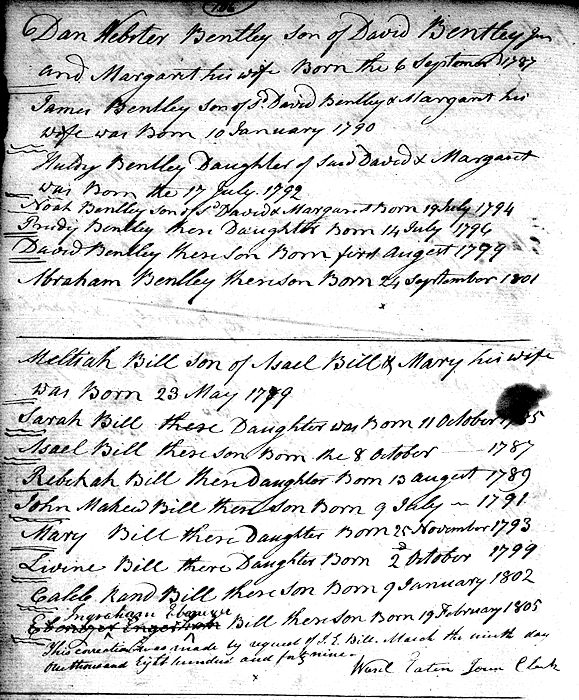 Dan Webster Bentley Son of David Bentley Jun
and Margaret his wife Born the 6 September 1787
James Bentley Son of sd. David Bentley & Margaret his
wife was Born 10 January 1790
Huldy Bentley Daughter of Said David & Margaret
was Born the 17 July 1792
Noah Bentley Son of sd David & Margaret Born 19 July 1794
Prudy Bentley there Daughter Born 14 July 1796
David Bentley there son Born first August 1799
Abraham Bentley there son Born 24 September 1801
Meltiah Bill Son of Asael Bill & Mary his wife
was Born 23 May 1779
Sarah Bill there Daughter was Born 11 October
Asael Bill there son Born the 8 October 1787
Rebekah Bill there Daughter Born 13 August 1789
John Mahew Bill there son Born 9 July 1791
Mary Bill there Daughter Born 25 November 1793
Livine Bill there Daughter Born 2d October 1799
Caleb Rand Bill there son Born 9 January 1802
Ingraham Ebenezer
Bill there son Born 19 February 1805
This correction was made by request of I. E. Bill. March the ninth day
one thousand Eight hundred and forty nine.
Ward Eaton Town Clerk